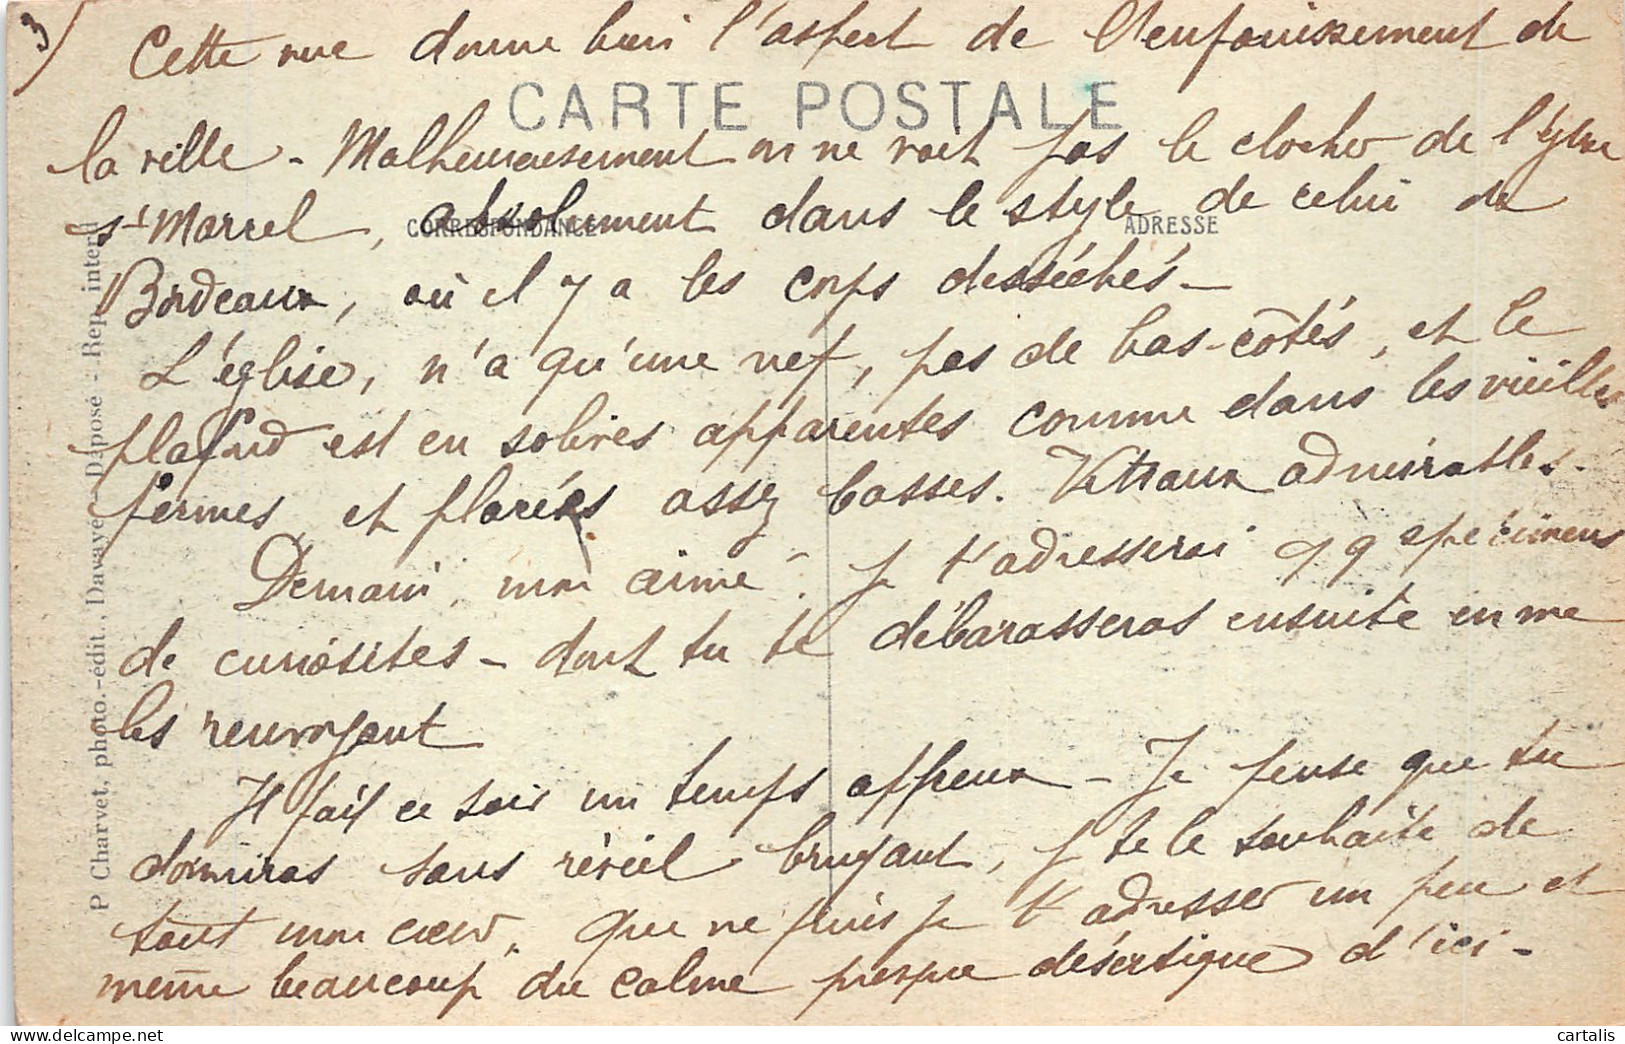 3)
Cette vue donne bien l'aspect de l'enfouissement de
CARTE POSTALE
la ville - Malheureusement on ne voit pas le clocher de l'église
St Marcel, absolument dans le style de celui de
CORRESPONDANCE
ADRESSE
Bordeaux, où il y a les corps desséchés -
L'église, n'a qu'une nef, pas de bas-côtés, et le
plafond est en solives apparentes comme dans les vieilles
fermes et placées assez basses. Vitraux admirables.
Demain, mon aimé, je t'adresserai qq spécimens
de curiosités - dont tu te débarasseras ensuite en me
les renvoyant
Il fait ce soir un temps affreux - Je pense que tu
dormiras sans réveil bruyant, je te le souhaite de
tout mon cœur. Que ne puis je t'adresser un peu et
même beaucoup du calme presque désertique d'ici -
P Charvet, photo.-édit., Davayé - Déposé - Rep. interd
cartalis